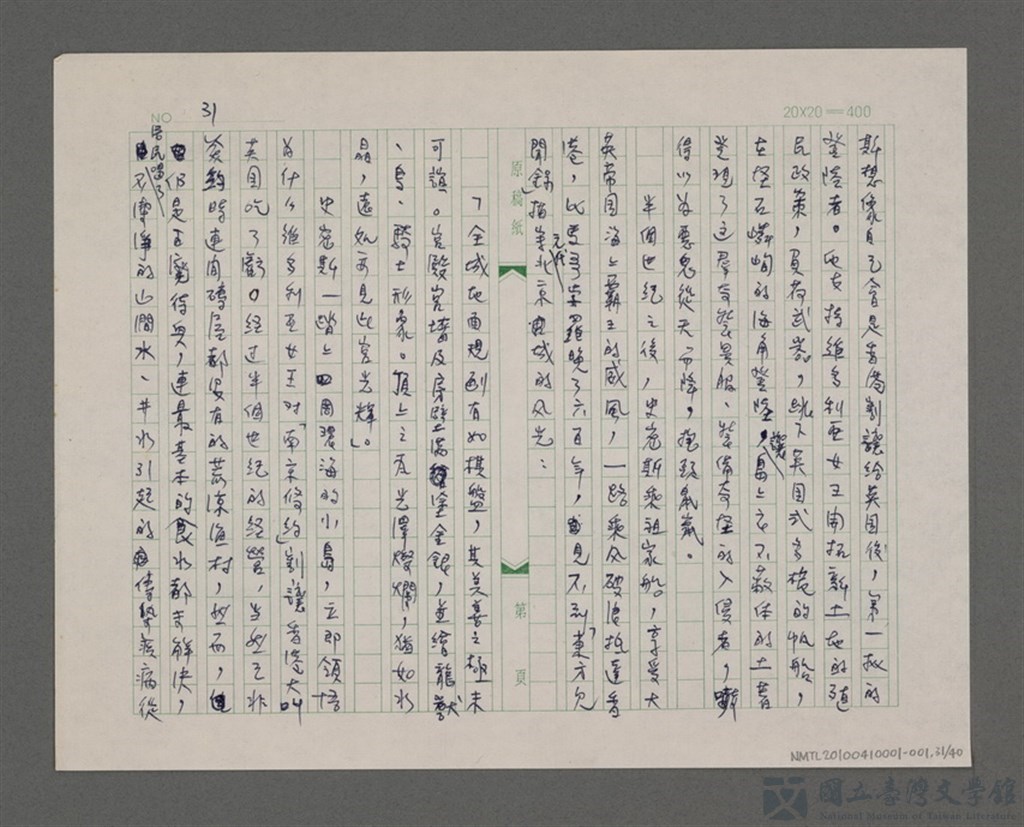 NO 31
20X20=400
斯想像自己會是香港割讓給英國後，第一批的
登陸者。他支持維多利亞女王開拓新土地的殖
民政策，肩荷武器，跳下英國式多桅的帆船，
在怪石嶙峋的海角登陸，讓島上衣不蔽体的土著
發現了這羣奇裝異服、裝備奇怪的入侵者，嚇
得以為惡鬼從天而降，抱頭鼠竄。
半個世紀之後，史密斯乘祖家船，享受大
英帝国海上霸王的威風，一路乘风破浪抵達香
港，比馬哥孛羅晚了六百年，見不到「東方見
聞錄」描寫元代北京城的风光：
原稿紙
第 頁
「全城地面規劃有如棋盤，其美善之極未
可諠。宮殿宮墻及房壁上滿塗金銀，並繪龍獸
、鳥、騎士形象。頂上之瓦光澤燦爛，猶如水
晶，遠処可見此宮光輝」。
史密斯一踏上四周環海的小島，立即領悟
為什么維多利亞女王对「南京條約」割讓香港大叫
英国吃了虧。經过半個世紀的經營，当然已非
簽約時連间磚屋都沒有的荒涼漁村，然而，
仍是百廢待興，連最基本的食水都未解決，
居民喝了不潔淨的山澗水、井水引起的傳染疾病從
NMTL20100410001-001.31/40
國立臺灣文學館
National Museum of Taiwan Literature